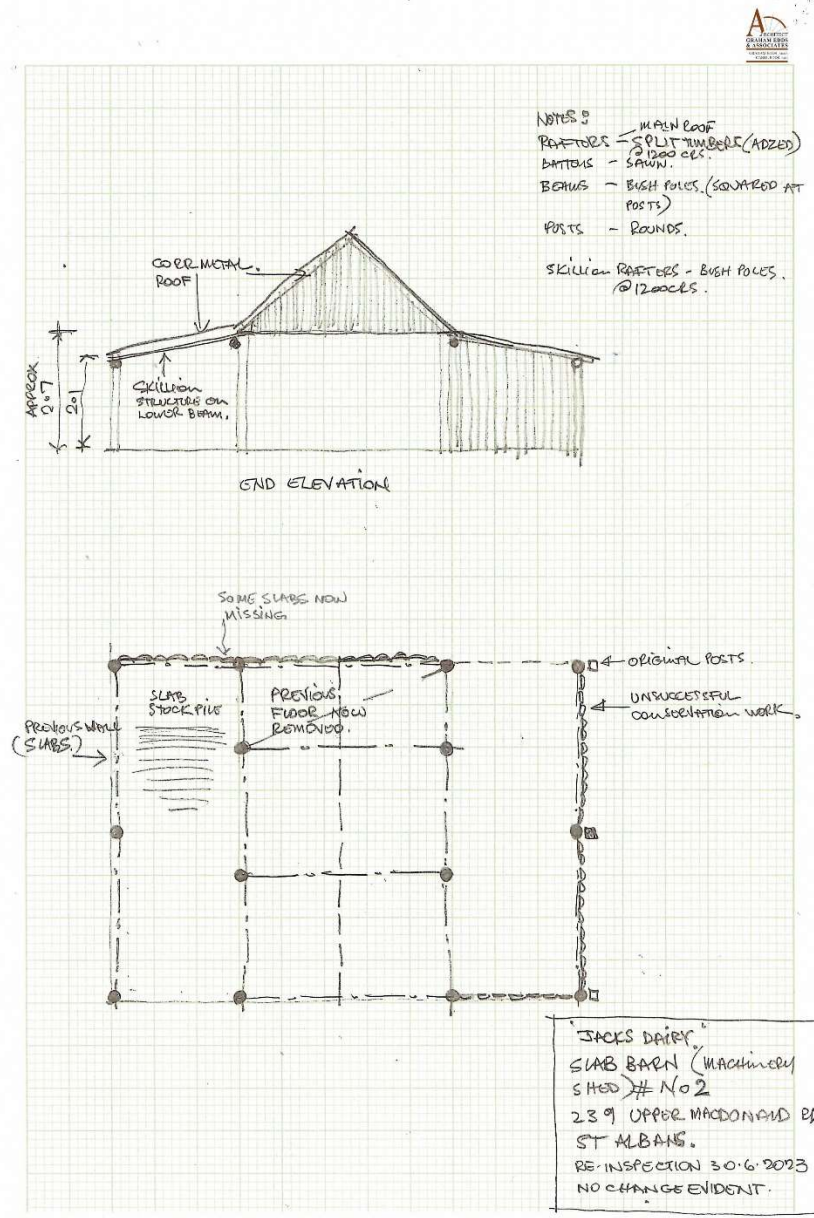 ARCHITECT
GRAHAM EDDS
& ASSOCIATES
NOTES:
MAIN ROOF
RAFTERS - SPLIT TIMBERS (ADZED)
@ 1200 CRS.
BATTENS - SAWN.
BEAMS - BUSH POLES. (SQUARED AT
POSTS)
POSTS - ROUNDS.
SKILLION RAFTERS - BUSH POLES.
@ 1200CRS.
CORR METAL.
ROOF
APPROX.
2.7
2.1
SKILLION
STRUCTURE ON
LOWER BEAM.
END ELEVATION
SOME SLABS NOW
MISSING
ORIGINAL POSTS.
SLAB
STOCKPILE
PREVIOUS
FLOOR NOW
REMOVED.
UNSUCCESSFUL
CONSERVATION WORK.
PREVIOUS WALL
(SLABS.)
"JACKS DAIRY."
SLAB BARN (MACHINERY
SHED) # No 2
239 UPPER MACDONALD RD
ST ALBANS.
RE-INSPECTION 30.6.2023
NO CHANGE EVIDENT.